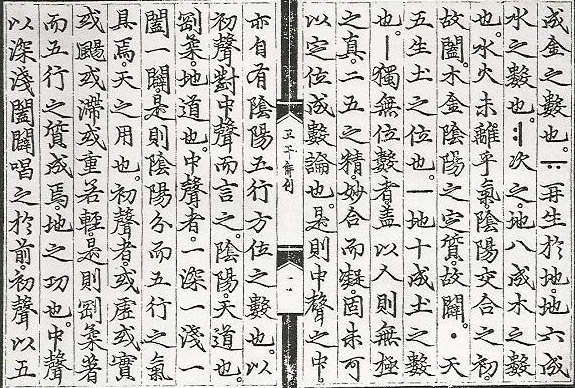 成金之數也。ᅟᅲ再生於地。地六成
水之數也。ᅟᅧ次之。地八成木之數
也。水火未離乎氣。陰陽交合之初
故闔。木金陰陽之定質。故闢。ㆍ天
五生土之位也。ㅡ地十成土之數
也。ㅣ獨無位數者盖以人則無極
之真。二五之精。妙合而凝。固未可
以定位成數論也。是則中聲之中。
正音解例
亦自有陰陽五行方位之數也。以
初聲對中聲而言之。陰陽。天道也。
剛柔。地道也。中聲者。一深一淺一
闔一闢。是則陰陽分而五行之氣
具焉。天之用也。初聲者。或虛或實
或颺或滯或重若輕。是則剛柔著
而五行之質成焉。地之功也。中聲
以深淺闔闢唱之於前。初聲以五